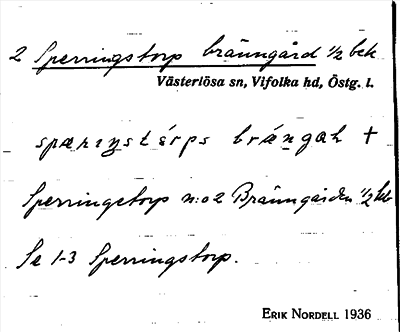 2 Sperringstorp bränngård 1/2 bek
Västerlösa sn, Vifolka hd, Östg. l.
spærıŋstórps bráŋgaʜ †
Sperringstorp n:o 2 Bränngården 1/2 bek
Se 1-3 Sperringstorp.
ERIK NORDELL 1936